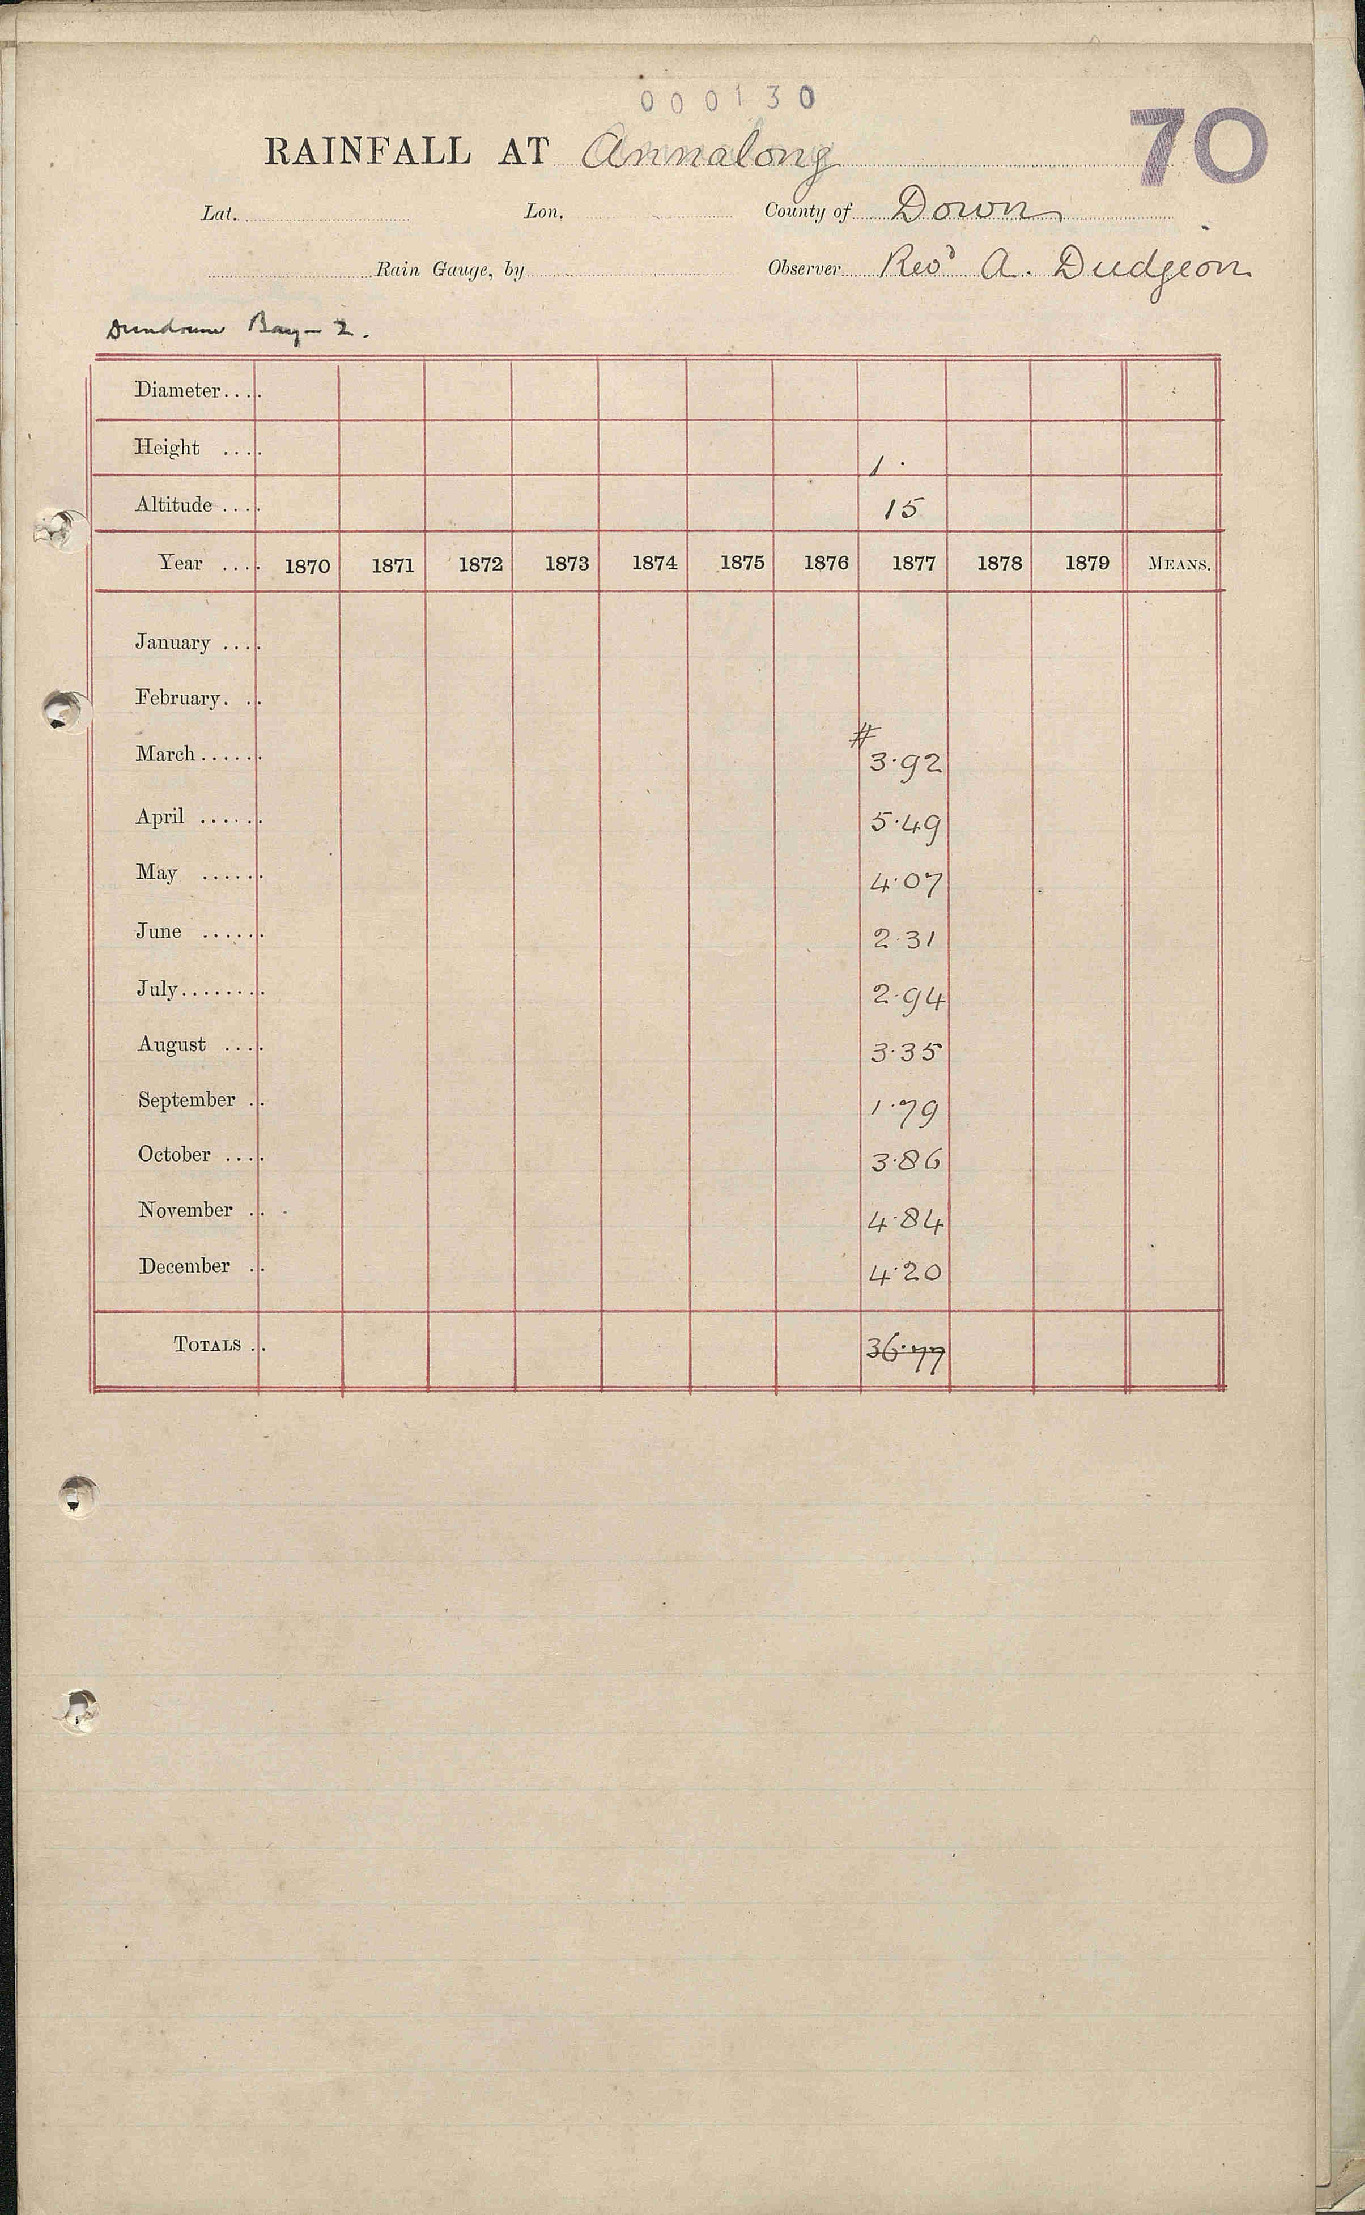 000130
70
RAINFALL AT Annalong
Lat. Lon. County of Down
Rain Gauge, by Observer Revd A. Dudgeon
Dundrum Bay - 2.
Diameter....
Height .... 1.
Altitude .... 15
Year .... 1870 1871 1872 1873 1874 1875 1876 1877 1878 1879 MEANS.
January ....
February. ..
#
March...... 3.92
April ...... 5.49
May ...... 4.07
June ...... 2.31
July........ 2.94
August .... 3.35
September .. 1.79
October .... 3.86
November .. 4.84
December .. 4.20
TOTALS .. 36.77